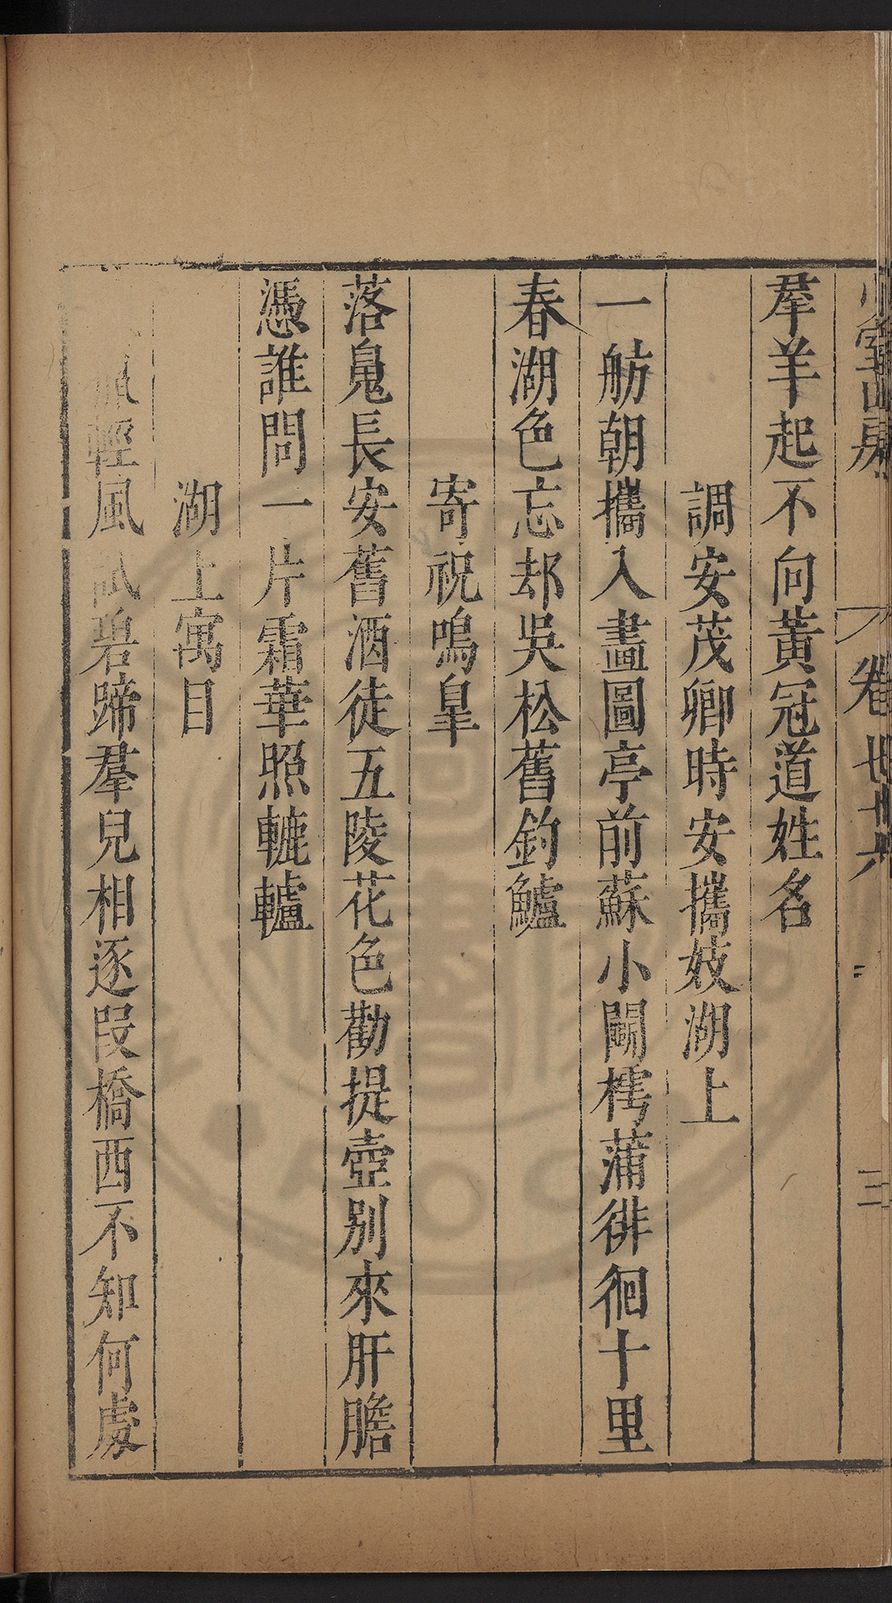 室山房
卷七十六
三
羣羊起不向黃冠道姓名
調安茂卿時安攜妓湖上
一舫朝攜入畫圖亭前蘇小鬭樗蒲徘徊十里
春湖色忘却吳松舊釣鱸
寄祝鳴臯
落䰟長安舊酒徒五陵花色勸提壺別來肝膽
憑誰問一片霜華照轆轤
湖上寓目
輕風試碧蹄羣兒相逐段橋西不知何處